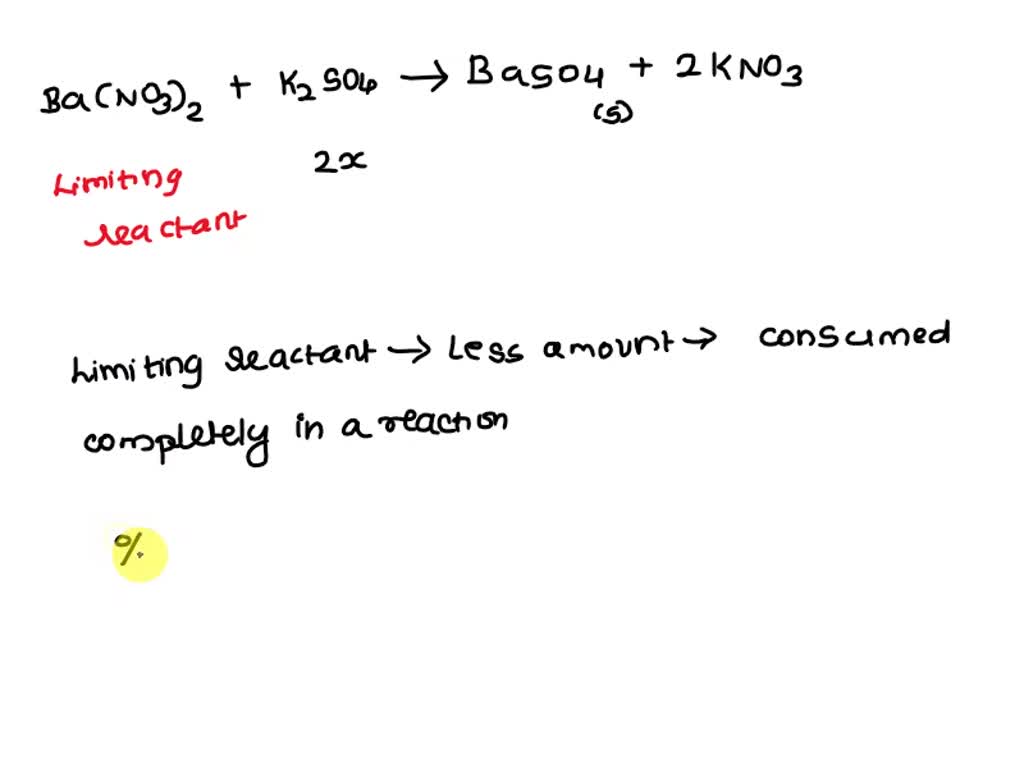 Ba(NO3)2 + K2SO4 → BaSO4 + 2KNO3
(s)
2x
Limiting
reactant
Limiting reactant → Less amount → consumed
completely in a reaction
%